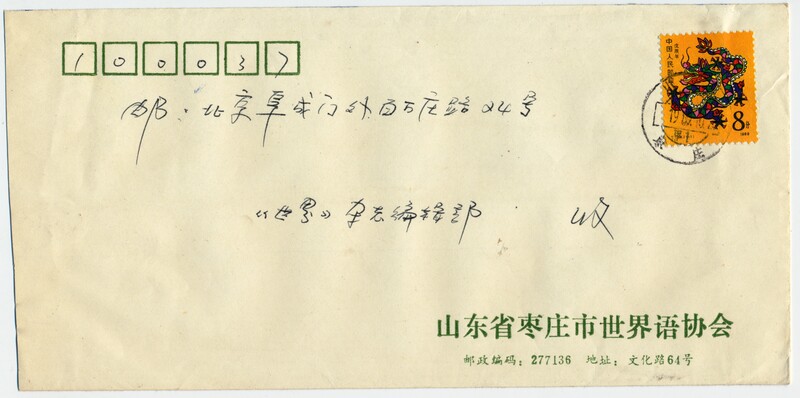 100037
邮·北京阜成门外百万庄路24号
《世界》杂志编辑部 收
中国人民邮政
戊辰年
8分
1988
庄
山东省枣庄市世界语协会
邮政编码：277136 地址：文化路64号